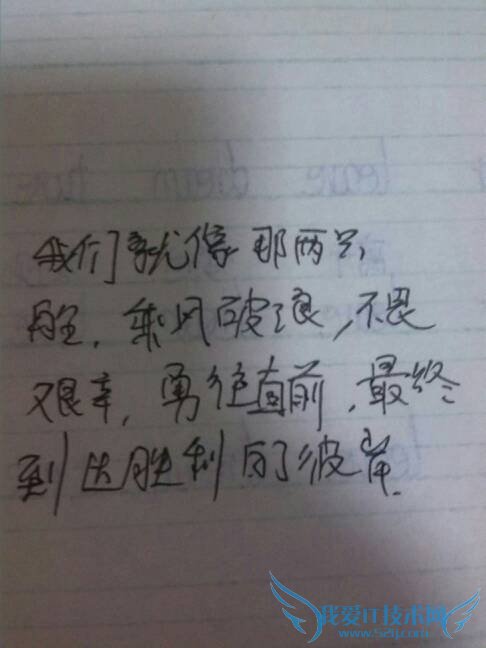 leave dream
我们就像那两只
舟,乘风破浪,不畏
艰辛,勇往直前,最终
到达胜利的彼岸.
我爱IT技术网
www.52ij.com